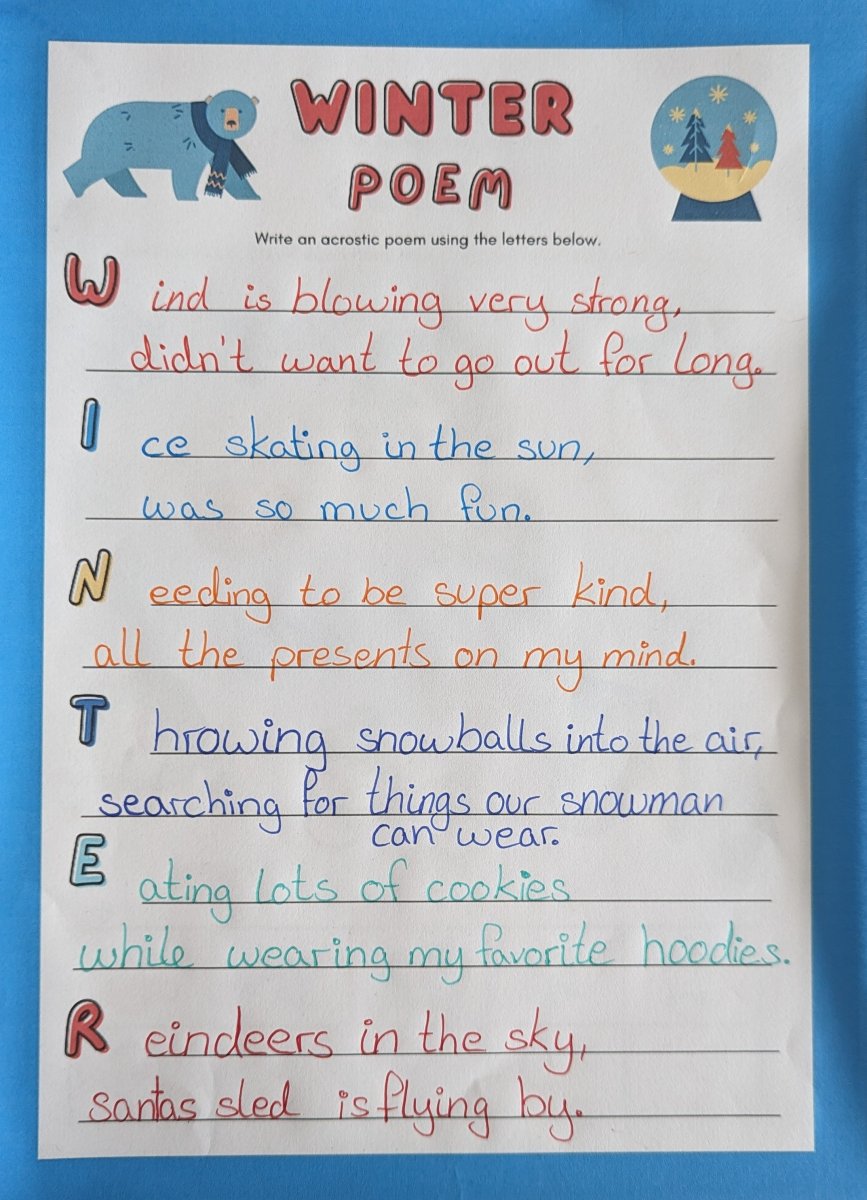 WINTER
POEM
Write an acrostic poem using the letters below.
Wind is blowing very strong,
didn't want to go out for long.
Ice skating in the sun,
was so much fun.
Needing to be super kind,
all the presents on my mind.
Throwing snowballs into the air,
searching for things our snowman
can wear.
Eating lots of cookies
while wearing my favorite hoodies.
Reindeers in the sky,
santas sled is flying by.